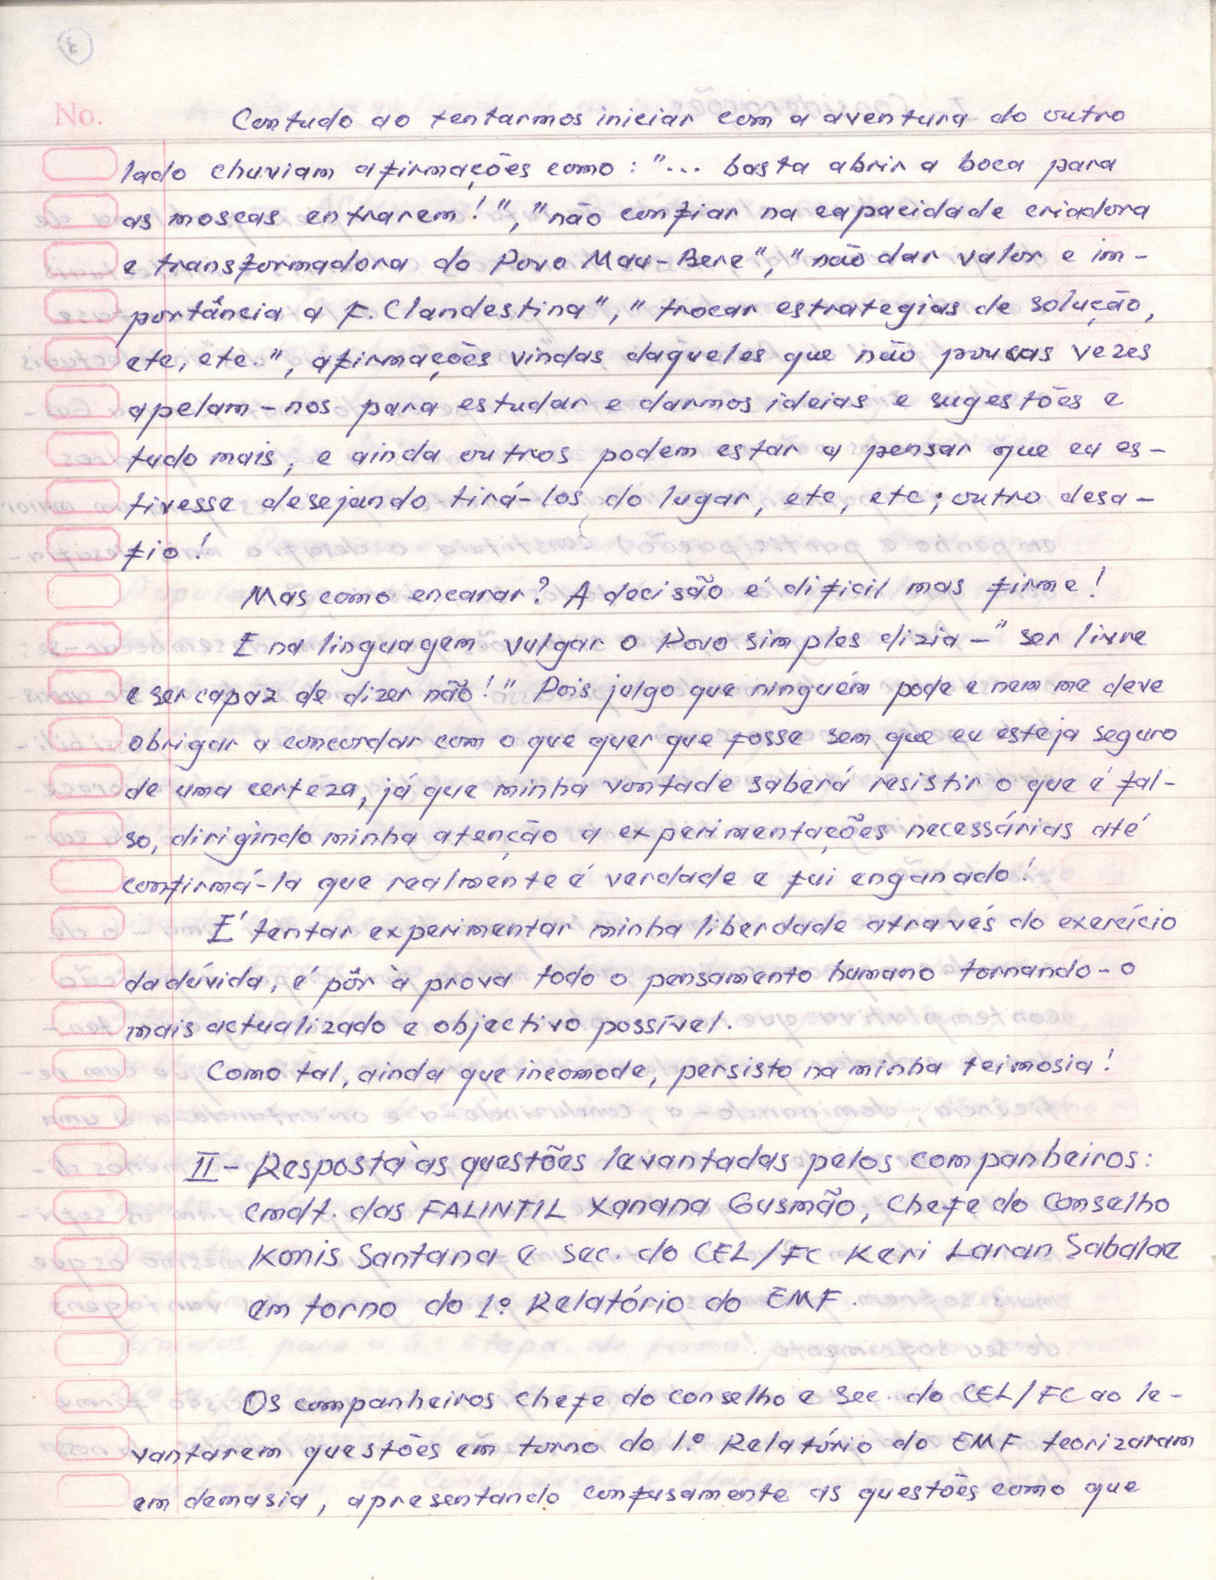 3
No.
Contudo ao tentarmos iniciar com a aventura do outro
lado chuviam afirmações como: "... basta abrir a boca para
as moscas entrarem!", "não confiar na capacidade criadora
e transformadora do Povo Mau-Bere", "não dar valor e im-
portância a F. Clandestina", "trocar estrategias de solução,
etc, etc.", afirmações vindas daqueles que não poucas vezes
apelam-nos para estudar e darmos ideias e sugestões e
tudo mais, e ainda outros podem estar a pensar que eu es-
tivesse desejando tirá-los do lugar, etc, etc; outro desa-
fio!
Mas como encarar? A decisão é dificil mas firme!
E na linguagem vulgar o Povo simples dizia - "ser livre
e ser capaz de dizer não!" Pois julgo que ninguém pode e nem me deve
obrigar a concordar com o que quer que fosse sem que eu esteja seguro
de uma certeza, já que minha vontade saberá resistir o que é fal-
so, dirigindo minha atenção a experimentações necessárias até
confirmá-la que realmente é verdade e fui enganado!
E' tentar experimentar minha liberdade através do exercício
da dúvida, é pôr à prova todo o pensamento humano tornando-o
mais actualizado e objectivo possível.
Como tal, ainda que incomode, persisto na minha teimosia!
II - Resposta às questões levantadas pelos companheiros:
Cmdt. das FALINTIL Xanana Gusmão, Chefe do Conselho
Konis Santana e Sec. do CEL/FC Keri Laran Sabalae
em torno do 1.º Relatório do EMF.
Os companheiros chefe do conselho e Sec. do CEL/FC ao le-
vantarem questões em torno do 1.º Relatório do EMF teorizaram
em demasia, apresentando confusamente as questões como que